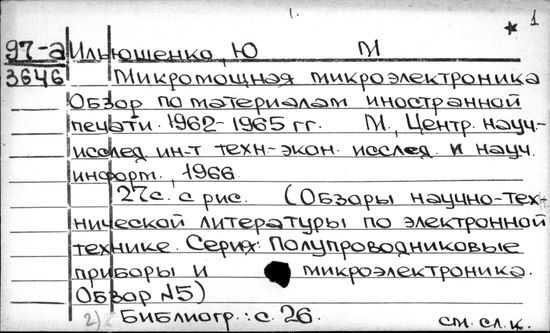 1. 1
97-а Ильюшенко, Ю М
3646 Микромощная микроэлектроника
Обзор по материалам иностранной
печати. 1962-1965 гг. М., Центр. науч-
исслед. ин-т техн-экон. исслед. и науч.
информ., 1966.
27с. с рис. (Обзоры научно-тех-
нической литературы по электронной
технике. Серия: Полупроводниковые
приборы и микроэлектроника.
Обзор №5)
2) Библиогр.: с. 26.
см. сл. к.